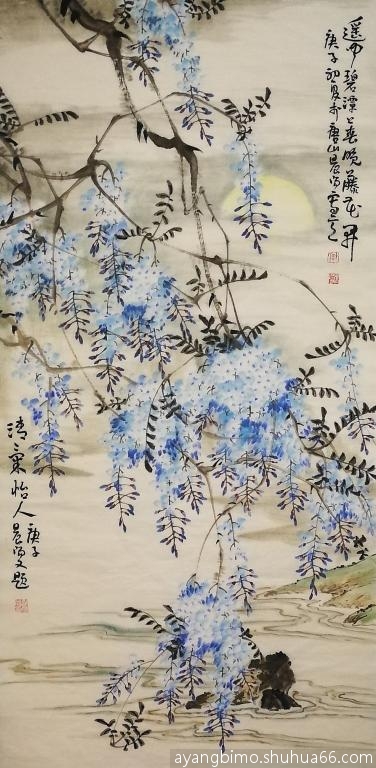 遥闻碧潭上春晚藤花开
庚子初夏于唐山
清怡人
庚子
又题
ayangbimo.shuhua66.com